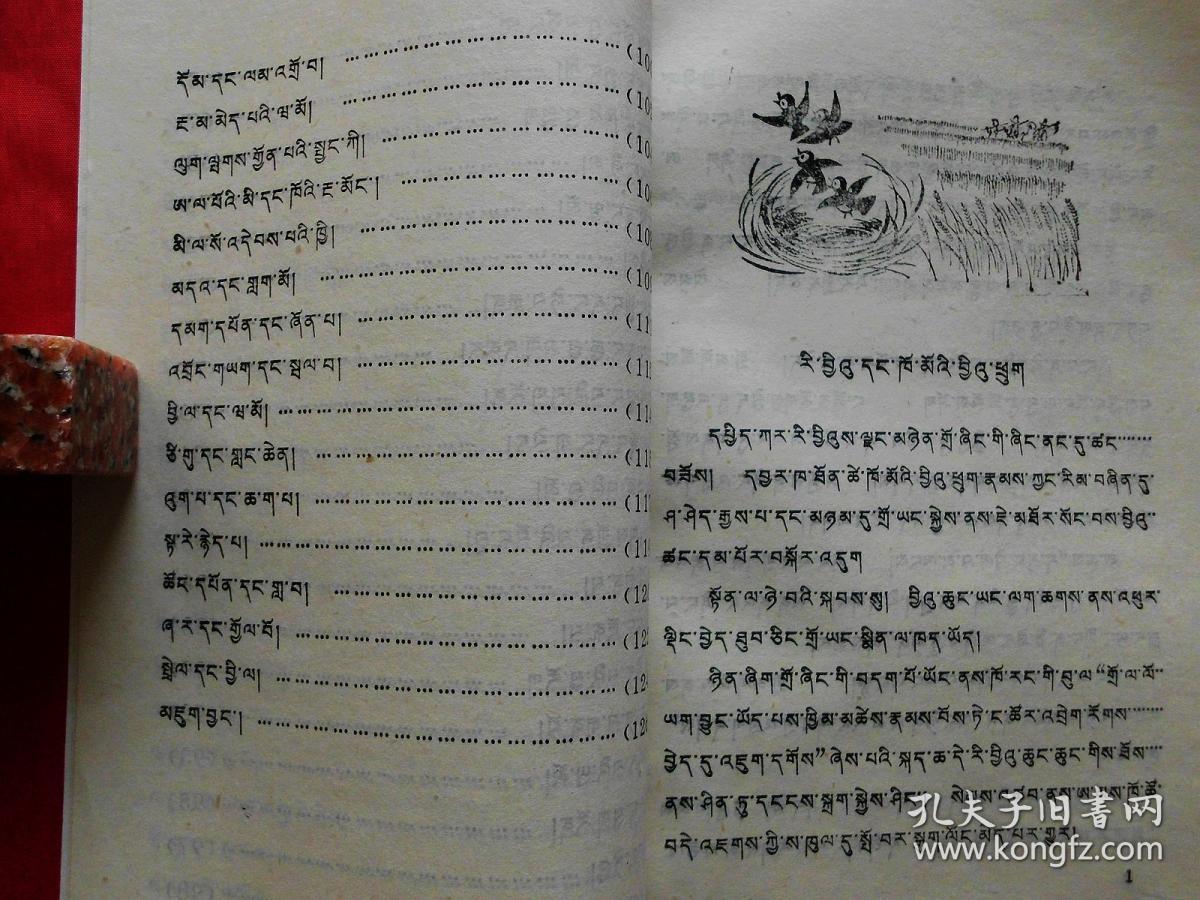 དོམ་དང་ལམ་འགྲོ་བ། ………………………… (10
རྔ་མ་མེད་པའི་ཝ་མོ། ………………………… (10
ལུག་ལྤགས་གྱོན་པའི་སྤྱང་ཀི། ………………………… (10
ཨ་ལ་པོའི་མི་དང་ཁོའི་རྔ་མོང་། ………………………… (10
མི་ལ་སོ་འདེབས་པའི་ཁྱི། ………………………… (10
མདའ་དང་གླག་མོ། ………………………… (10
དམག་དཔོན་དང་ཞོན་པ། ………………………… (11
འབྲོང་གཡག་དང་སྦལ་བ། ………………………… (11
བྱི་ལ་དང་ཝ་མོ། ………………………… (11
ཙི་གུ་དང་གླང་ཆེན། ………………………… (11
འུག་པ་དང་ཆ་ག་པ། ………………………… (11
སྟ་རེ་རྙེད་པ། ………………………… (11
ཚོང་དཔོན་དང་གླ་བ། ………………………… (12
ཞ་ར་དང་གྱོལ་པོ། ………………………… (12
སྤྲེལ་དང་བྱི་ལ། ………………………… (12
མཇུག་བྱང་། ………………………… (12
རི་བྱིའུ་དང་ཁོ་མོའི་བྱིའུ་ཕྲུག
དཔྱིད་ཀར་རི་བྱིའུས་ལྗང་མཉེན་གྲོ་ཞིང་གི་ཞིང་ནང་དུ་ཚང་……
བཟོས། དབྱར་ཁ་ཐོན་ཚེ་ཁོ་མོའི་བྱིའུ་ཕྲུག་རྣམས་ཀྱང་རིམ་བཞིན་དུ་
ཤ་ཤེད་རྒྱས་པ་དང་མཉམ་དུ་གྲོ་ཡང་སྐྱེས་ནས་ཇེ་མཐོར་སོང་བས་བྱིའུ་
ཚང་དམ་པོར་བསྐོར་འདུག
སྟོན་ལ་ཉེ་བའི་སྐབས་སུ། བྱིའུ་ཆུང་ཡང་ལག་ཆགས་ནས་འཕུར་
ལྡིང་བྱེད་ཐུབ་ཅིང་གྲོ་ཡང་སྨིན་ལ་ཁད་ཡོད།
ཉིན་ཞིག་གྲོ་ཞིང་གི་བདག་པོ་ཡོང་ནས་ཁོ་རང་གི་བུ་ལ་“གྲོ་ལ་ལོ་
ཡག་བྱུང་ཡོད་པས་ཁྱིམ་མཚེས་རྣམས་བོས་ཏེ་ང་ཚོར་འབྲེག་རོགས་……
བྱེད་དུ་འཇུག་དགོས”ཞེས་པའི་སྐད་ཆ་དེ་རི་བྱིའུ་ཆུང་ཆུང་གིས་ཐོས་…
ནས་ཤིན་ཏུ་དངངས་སྐྲག་སྐྱེས་ཤིང་།
བདེ་འཇགས་ཀྱི་ས་ཁུལ་དུ་སྤོ་བར་
1
孔夫子旧书网
www.kongfz.com